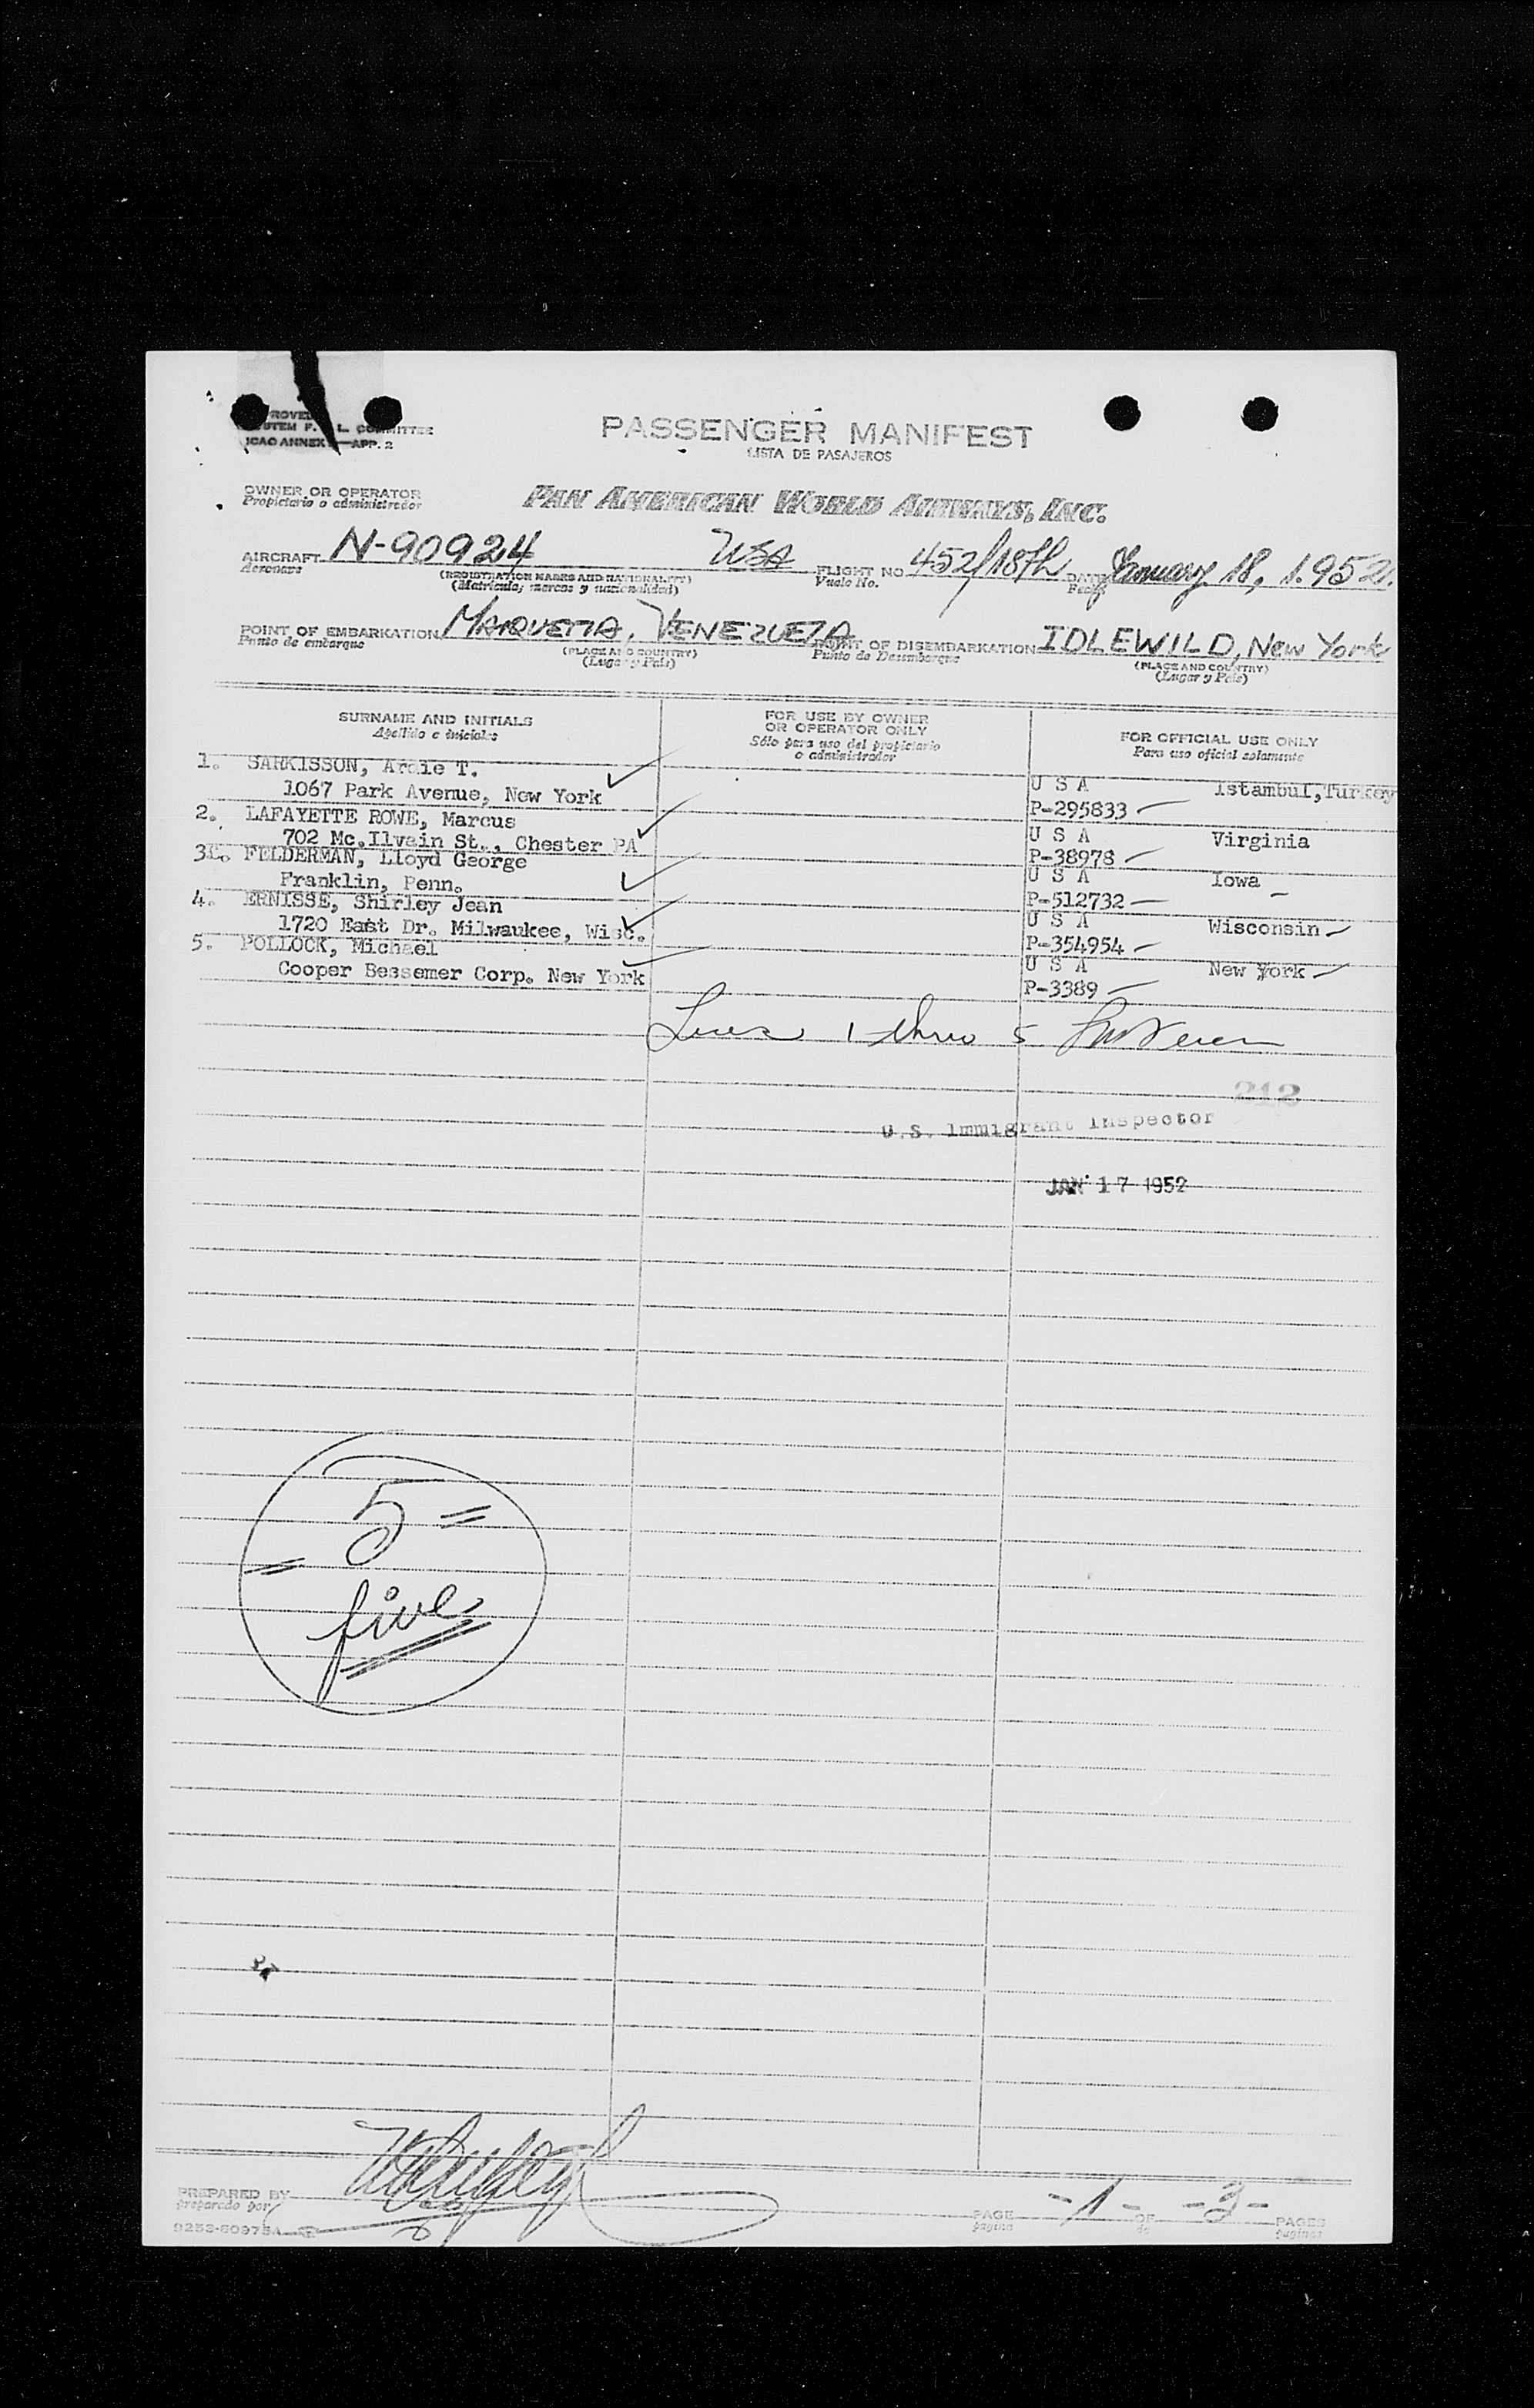 PASSENGER MANIFEST
LISTA DE PASAJEROS
ICAO ANNEX —APP. 2
OWNER OR OPERATOR
Propietario o administrador
PAN AMERICAN WORLD AIRWAYS, INC.
AIRCRAFT N-90924 USA FLIGHT NO 452/18th DATE January 18, 1.952.
Aeronave (REGISTRATION MARKS AND NATIONALITY) Vuelo No. Fecha
(Matricula, marcas y nacionalidad)
POINT OF EMBARKATION MAIQUETIA, VENEZUELA POINT OF DISEMBARKATION IDLEWILD, New York
Punto de embarque (PLACE AND COUNTRY) Punto de Desembarque (PLACE AND COUNTRY)
(Lugar y Pais) (Lugar y Pais)
SURNAME AND INITIALS FOR USE BY OWNER OR OPERATOR ONLY FOR OFFICIAL USE ONLY
Apellido e iniciales Sólo para uso del propietario o administrador Para uso oficial solamente
1. SARKISSON, T. U S A Istambul, Turkey
1067 Park Avenue, New York P-295833
2. LAFAYETTE ROWE, Marcus U S A Virginia
702 Mc.Ilvain St., Chester PA P-38978
3. FELDERMAN, Lloyd George U S A Iowa
Franklin, Penn. P-512732
4. ERNISSE, Shirley Jean U S A Wisconsin
1720 East Dr. Milwaukee, Wisc. P-354954
5. POLLOCK, Michael U S A New York
Cooper Bessemer Corp. New York P-3389
Lines 1 thru 5
212
U.S. Immigrant Inspector
JAN 17 1952
5 =
=
five
PREPARED BY
preparado por
PAGE -1- OF -3- PAGES
pagina de paginas